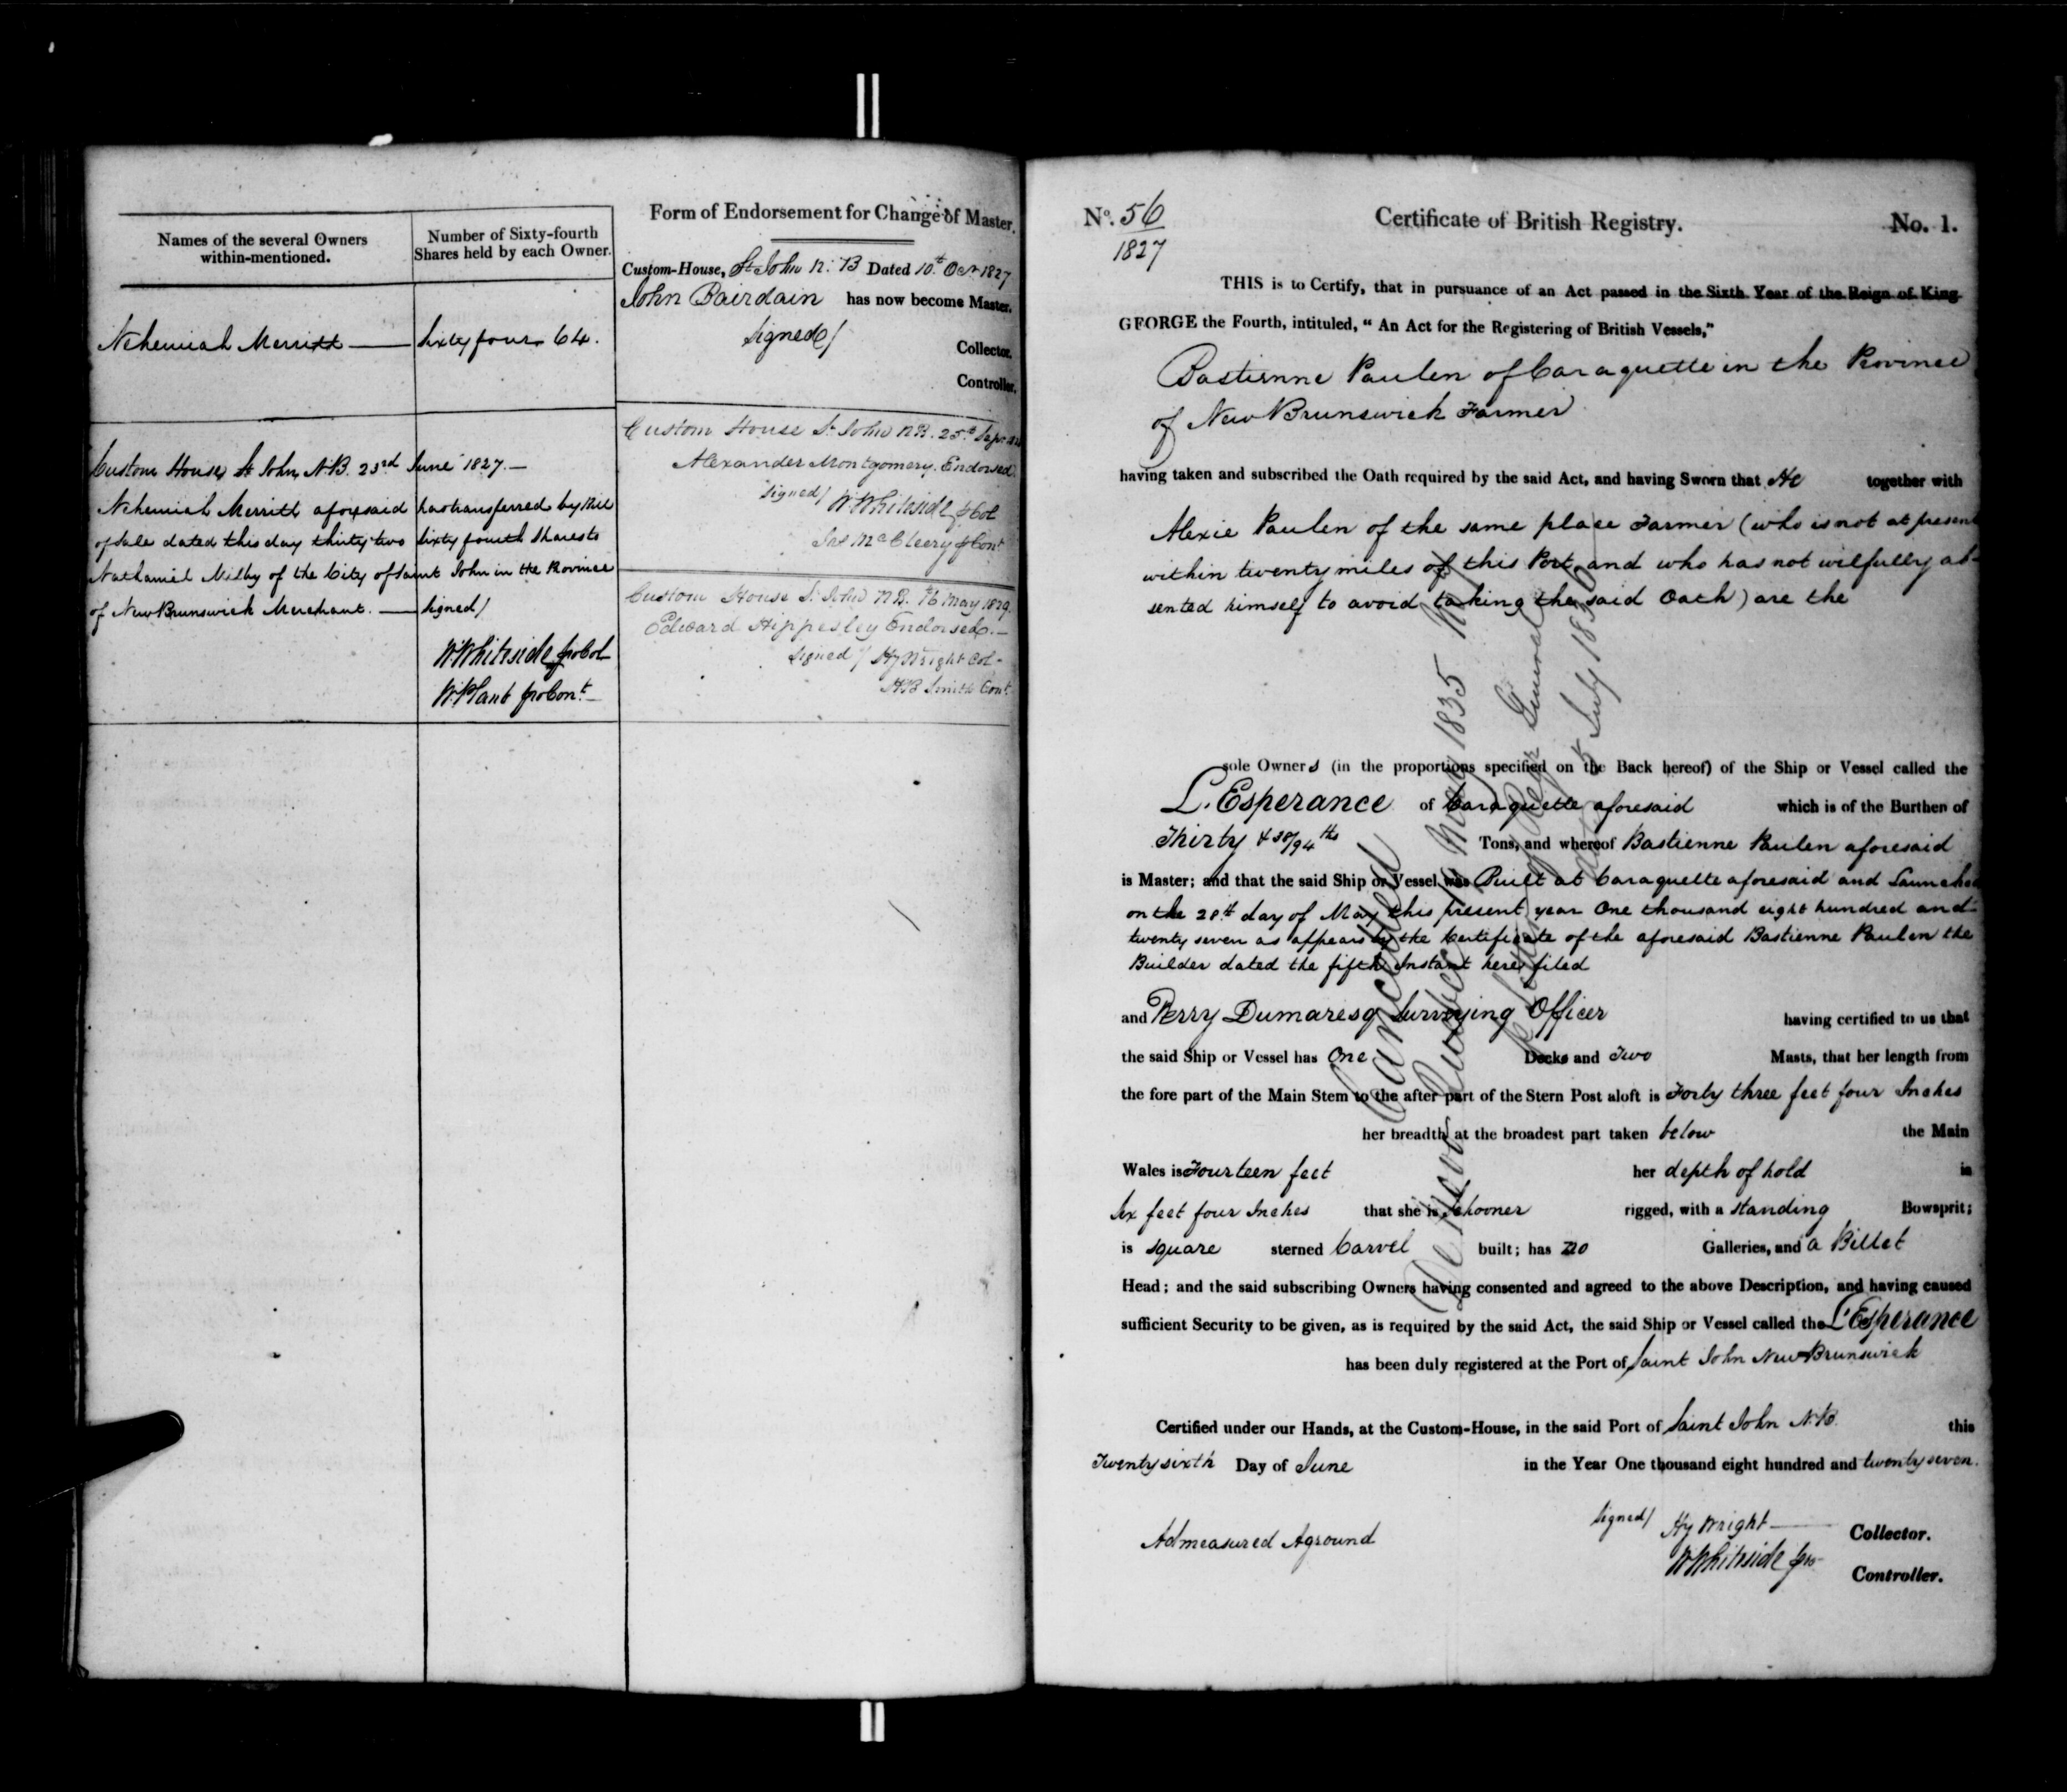 Names of the several Owners
within-mentioned.
Number of Sixty-fourth
Shares held by each Owner.
Nehemiah Merritt
Sixty four 64.
Custom House St John N.B. 23rd June 1827.
Nehemiah Merritt aforesaid has transferred by Bill
of Sale dated this day thirty two sixty fourth Shares to
Nathaniel of the City of Saint John in the Province
of New Brunswick Merchant. signed/
W Whiteside pro Col
pro Cont
Form of Endorsement for Change of Master.
Custom-House, St John N.B Dated 10th Octr 1827
John Bairdain has now become Master.
Signed/
Collector.
Controller.
Custom House St John N.B. 25th Sepr
Alexander Montgomery. Endorsed
signed/ W Whiteside p Col
Jas McCleery p Cont
Custom House St John N.B. 16 May 1829.
Edward Hippesley Endorsed.
signed/ Hy Wright Col
HB Smith Cont
No. 56
1827
Certificate of British Registry.
No. 1.
THIS is to Certify, that in pursuance of an Act passed in the Sixth Year of the Reign of King
GEORGE the Fourth, intituled, “ An Act for the Registering of British Vessels,”
Bastienne Paulen of Caraquette in the Province
of New Brunswick Farmer
having taken and subscribed the Oath required by the said Act, and having Sworn that He together with
Alexie Paulen of the same place Farmer (who is not at present
within twenty miles of this Port and who has not wilfully ab-
sented himself to avoid taking the said Oath) are the
sole Owners (in the proportions specified on the Back hereof) of the Ship or Vessel called the
L'Esperance of Caraquette aforesaid which is of the Burthen of
Thirty & 38/94ths Tons, and whereof Bastienne Paulen aforesaid
is Master; and that the said Ship or Vessel was Built at Caraquette aforesaid and Launched
on the 28th day of May this present year One thousand eight hundred and
twenty seven as appears by the Certificate of the aforesaid Bastienne Paulen the
Builder dated the fifth Instant here filed
and Perry Dumaresq Surveying Officer having certified to us that
the said Ship or Vessel has One Decks and Two Masts, that her length from
the fore part of the Main Stem to the after part of the Stern Post aloft is Forty three feet four Inches
her breadth at the broadest part taken below the Main
Wales is Fourteen feet her depth of hold is
Six feet four Inches that she is Schooner rigged, with a standing Bowsprit;
is square sterned Carvel built; has no Galleries, and a Billet
Head; and the said subscribing Owners having consented and agreed to the above Description, and having caused
sufficient Security to be given, as is required by the said Act, the said Ship or Vessel called the L'Esperance
has been duly registered at the Port of Saint John New Brunswick
Certified under our Hands, at the Custom-House, in the said Port of Saint John N.B. this
Twenty sixth Day of June in the Year One thousand eight hundred and twenty seven.
Signed/ Hy Wright Collector.
Admeasured Aground
W Whiteside pro Controller.
Cancelled
May 1835
General
July 1836